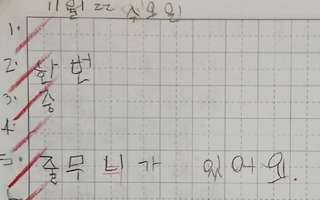 11월 22 수요일
1.
2. 한 번
3. 중
4.
5. 줄무늬가 있어요.
6